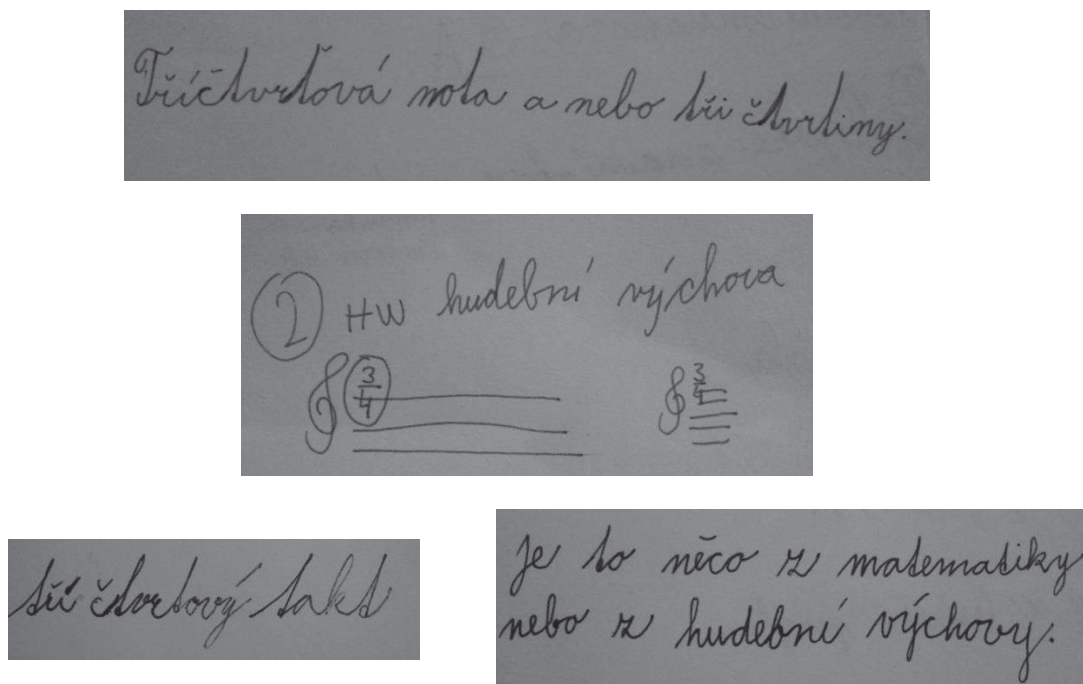 Tříčtvrťová nota a nebo tři čtvrtiny.
2 HW hudební výchova
3/4 3/4
tří čtvrtový takt
Je to něco z matematiky
nebo z hudební výchovy.